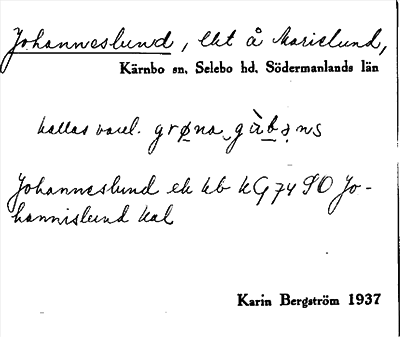 Johanneslund, lht å Marielund,
Kärnbo sn, Selebo hd, Södermanlands län
kallas vard. grøna gàbəns
Johanneslund ek kb KG 74 SO Jo-
hannislund kal
Karin Bergström 1937